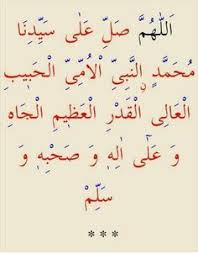 اَللّٰهُمَّ صَلِّ عَلٰى سَيِّدِنَا
مُحَمَّدٍ نِالنَّبِيِّ الْاُمِّيِّ الْحَبِيبِ
الْعَالِى الْقَدْرِ الْعَظِيمِ الْجَاهِ
وَ عَلٰٓى اٰلِهٖ وَ صَحْبِهٖ وَ
سَلِّمْ
* * *